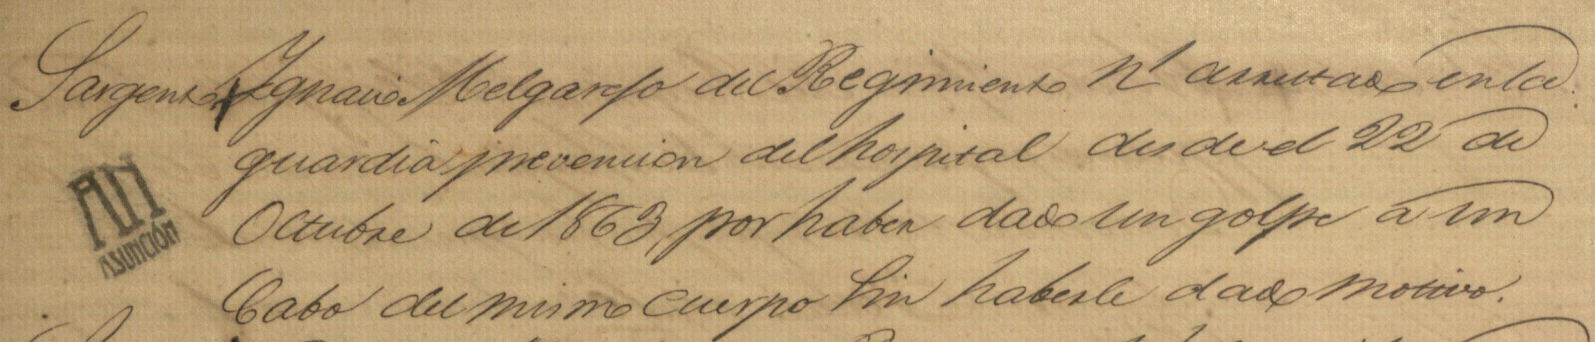 Sargento Ygnacio Melgarejo del Regimiento N.1 arrestado en la
guardia prevencion del hospital desde el 22 de
Octubre de 1863, por haber dado un golpe a un
Cabo del mismo Cuerpo Sin haberle dado motivo.
ASUNCIÓN